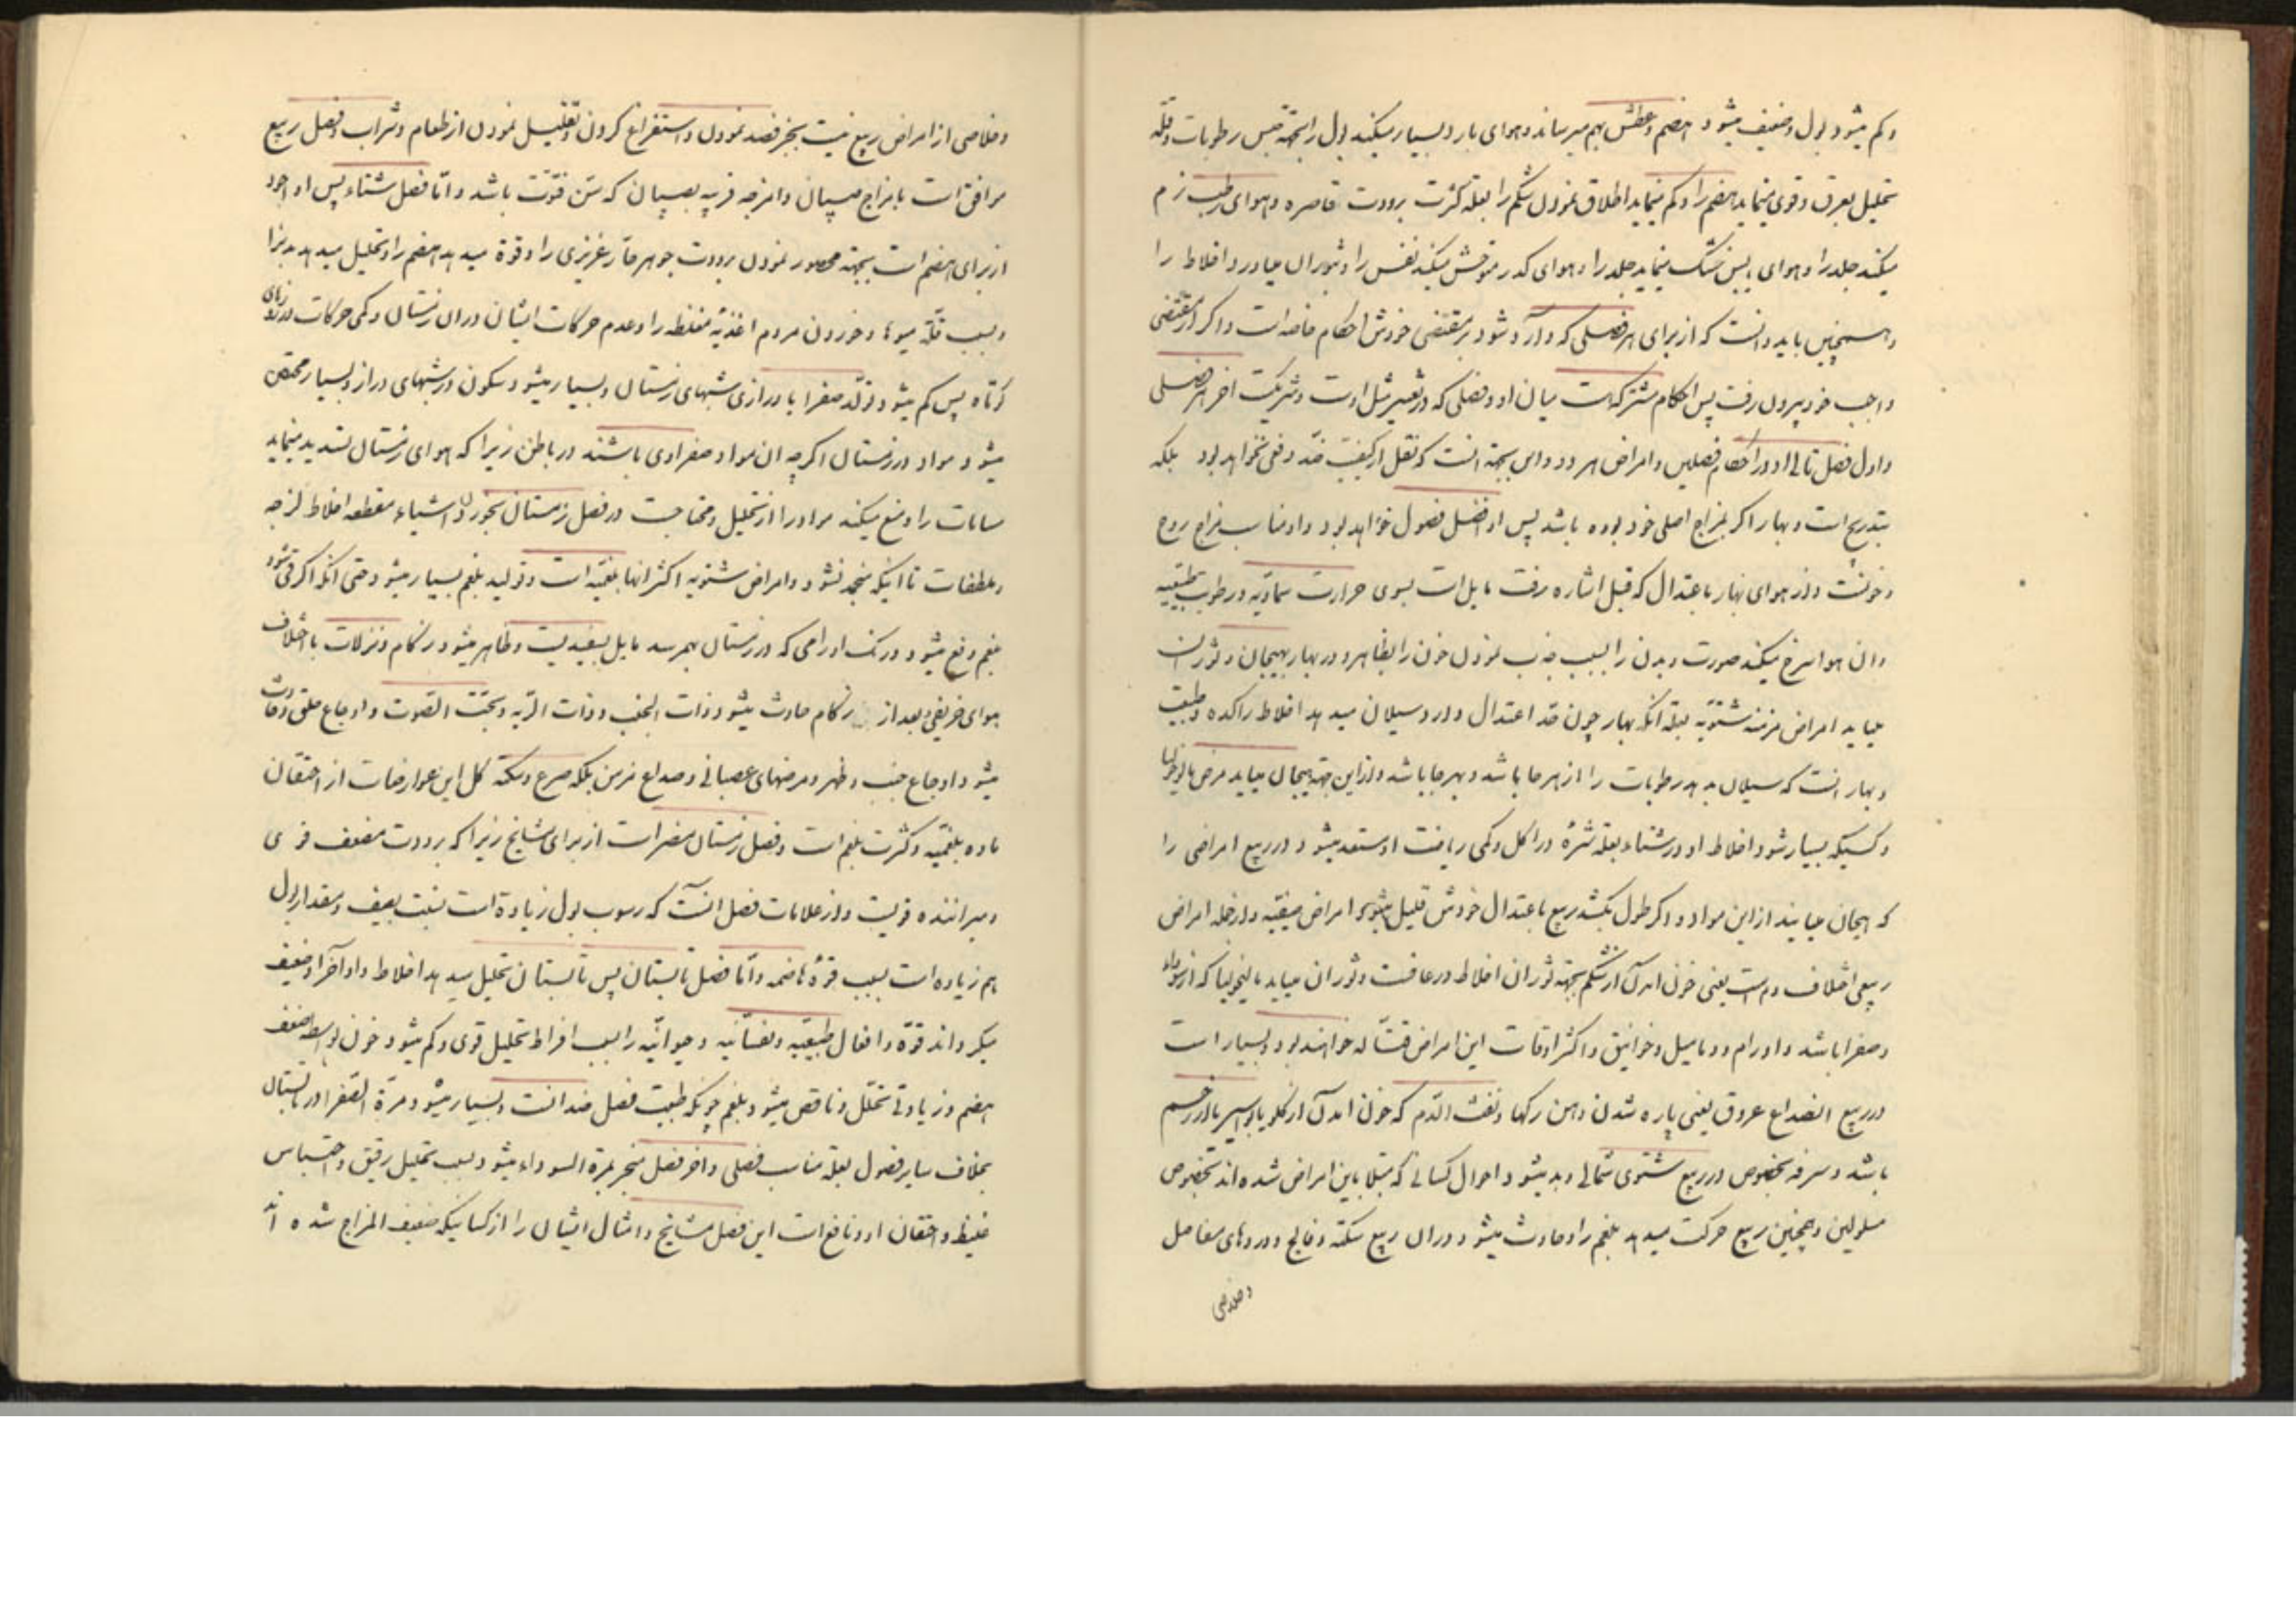 وکم میشود بول و ضعیف میشود هضم و عطش بهم میرساند و هوای بارد بسیار میکند بول را بجهة حبس رطوبات و قلة
تحلیل بعرق و قوی مینماید هضم را و کم مینماید اطلاق نمودن شکم را بعلة کثرت برودت قاصره و هوای رطب نرم
میکند جلد را و هوای یابس خشک مینماید جلد را و هوای کدر متوحش میکند نفس را و بثوران میآورد اخلاط را
و همچنین باید دانست که از برای هر فصلی که وارد شود بر مقتضی خودش احکام خاصه است و اگر از مقتضی
واجب خود بیرون رفت پس احکام مشترک است میان او و فصلی که در تغییر مثل اوست و شریکست اخر هر فصلی
و اول فصل تالی او در احکام فصلین و امراض هر دو و این بجهة انست که نقل از کیفیت ضد دفعی نخواهد بود بلکه
بتدریج است و بهار اگر بمزاج اصلی خود بوده باشد پس او افضل فصول خواهد بود و او مناسب مزاج روح
و خونست و از هوای بهار باعتدال که قبل اشاره رفت مایل است بسوی حرارت سماویه و رطوبت طبیعیه
و ان هوا سرخ میکند صورت و بدن را بسبب جذب نمودن خون را بظاهر و در بهار بهیجان و ثوران
میاید امراض مزمنه شتویه بعلة آنکه بهار چون حد اعتدال دارد سیلان میدهد اخلاط راکده و طبیعت
و بهار انست که سیلان بدهد رطوبات را از هر جا باشد و بهر جا باشد و از این جهة بهیجان میاید مرض مالیخولیا
و کسیکه بسیار شود اخلاط او در شتاء بعلة شره در اکل و کمی ریاضت او مستعد میشود در ربیع امراضی را
که بهیجان میایند از این مواد و اگر طول بکشد ربیع باعتدال خودش قلیل میشود امراض صیفیه و از جمله امراض
ربیعی اختلاف دم است یعنی خون امدن از شکم بجهة ثوران اخلاط و رعافست و ثوران میاید مالیخولیا که از سوداء
و صفرا باشد و اورام و دمامیل و خوانیق و اکثر اوقات این امراض قتاله خواهند بود و بسیار است
در ربیع انصداع عروق یعنی پاره شدن دهن رکها و نفث الدم که خون امدن از گلو یا بواسیر یا از زخم
باشد و سرفه بخصوص در ربیع شتوی شمالی و بد میشود احوال کسانی که مبتلا باین امراض شده اند بخصوص
مسلولین و همچنین ربیع حرکت میدهد بلغم را و حادث میشود در ان ربیع سکته و فالج و دردهای مفاصل
وخلاصی
وخلاصی از امراض ربیع نیست بجز فصد نمودن و استفراغ کردن و تقلیل نمودن از طعام و شراب و فصل ربیع
موافق است با مزاج صبیان و امزجه قریبه بصبیان که سن فتوّت باشد و امّا فصل شتاء پس او اجود
از برای هضم است بجهة محصور نمودن برودت جوهر حارّ غریزی را و قوة میدهد هضم را و تحلیل میدهد
و بسبب قلّة میوها و خوردن مردم اغذیه مغلظه را و عدم حرکات ایشان در ان زمستان و کمی حرکات در روزهای
کوتاه پس کم میشود تولّد صفرا با درازی شبهای زمستان و بسیار میشود سکون در شبهای دراز و بسیار محتقن
میشود مواد در زمستان اکرچه ان مواد صفراوی باشند در باطن زیرا که هوای زمستان تسدید مینماید
مسامات را و منع میکند مواد را از تحلیل و محتاجست در فصل زمستان بخوردن اشیاء مقطعه اخلاط لزجه
و ملطفات تا اینکه منجمد نشود و امراض شتویه اکثر انها بلغمیه است و تولید بلغم بسیار میشود حتی انکه اکر قی شود
بلغم دفع میشود و رنک اورامی که در زمستان بهم رسد مایل بسفیدیست و ظاهر میشود زکام و نزلات باختلاف
هوای خریفی و بعد از زکام حادث میشود ذات الجنب و ذات الریه و بحّت الصّوت و اوجاع حلق و حادث
میشود اوجاع جنب و ظهر و مرضهای عصبانی و صداع مزمن بلکه صرع و سکته کل این عوارضات از احتقان
ماده بلغمیّه و کثرت بلغم است و فصل زمستان مضر است از برای مشایخ زیرا که برودت مضعف قوی
و میراننده قویست و از علامات فصل انست که رسوب بول زیاده است بنسبت بصیف و مقدار بول
هم زیاده است بسبب قوّة هاضمه و امّا فصل تابستان پس تابستان تحلیل میدهد اخلاط و ضعیف
میکرداند قوّة و افعال طبیعیّه و نفسانیّه و حیوانیّه را بسبب افراط تحلیل قوی و کم میشود خون بواسطه ضعف
هضم و زیادتی تحلّل و ناقص میشود بلغم چونکه طبیعت فصل ضد انست و بسیار میشود مرّة الصّفرا در تابستان
بخلاف سایر فصول بعلّة مناسب فصلی و اخر فصل منجر بمرة السوداء میشود بسبب تحلیل رقیق و احتباس
غلیظ و احتقان او و نافع است این فصل مشایخ و امثال ایشان را از کسانیکه ضعیف المزاج شده اند